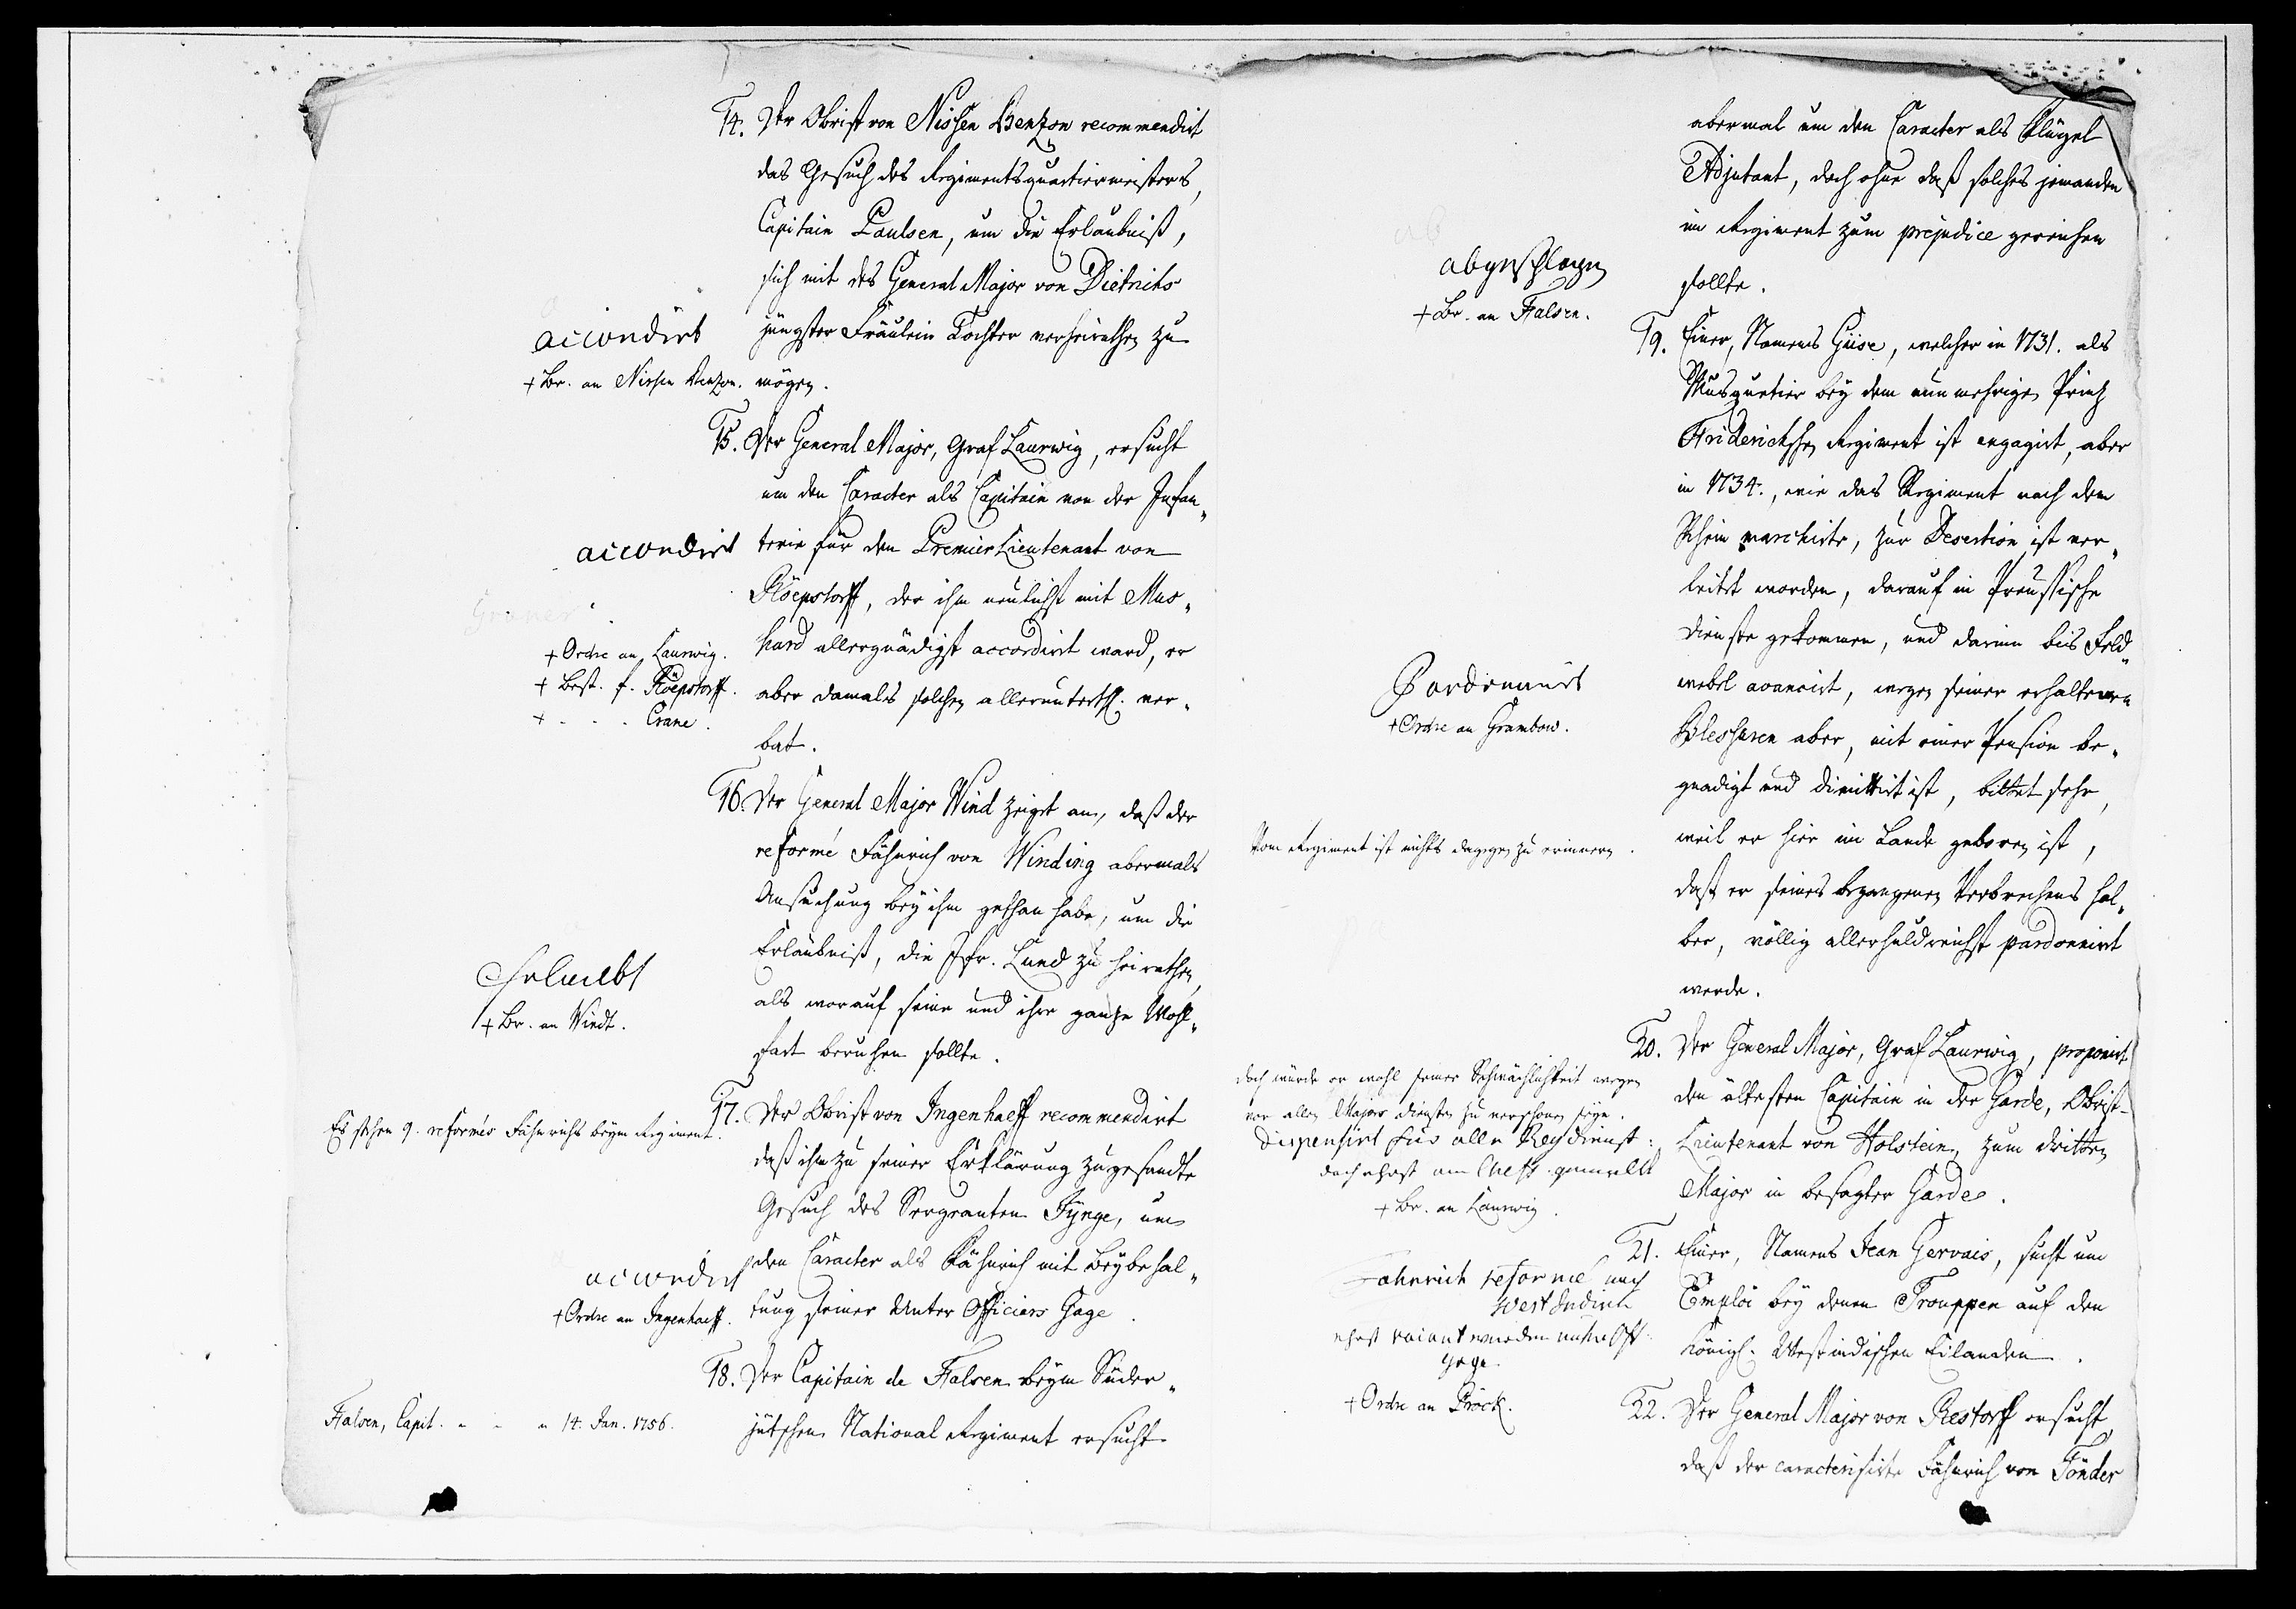 14. Der Obrist von Nissen Benzon recommendirt
das Gesuch des Regimentsquartiermeisters,
Capitain Paulsen, um die Erlaubniß,
sich mit des General Major von Dietrichs
jüngster Fräulein Tochter verheirathen zu
mögen.
accordirt
+ Br. an Nissen Benzon.
15. Der General Major, Graf Laurwig, ersucht
um den Caracter als Capitain von der Infan„
terie für den Premier Lieutenant von
Röepstorff, der ihm neulichst mit Mus„
hard allergnädigst accordirt ward, er
aber damals solchen allerunterth. ver„
bat.
accordirt
+ Ordre an Laurwig.
+ Best. f. Röepstorff.
+ - - - Crane.
16. Der General Major Wind zeiget an, daß der
reformé Fähnrich von Winding abermals
Ansuchung bey ihm gethan habe, um die
Erlaubniß, die Jfr. Lund zu heirathen,
als worauf seine und ihre ganze Wohl„
fart beruhen sollte.
Erlaubt
+ Br. an Windt.
17. Der Obrist von Ingenhaeff recommendirt
daß ihm zu seiner Erklärung zugesandte
Gesuch des Sergeanten Fynge, um
den Caracter als Fähnrich mit Beybehal„
tung seiner Unter Officiers Gage.
Es stehen 9. reformés Fähnrichs beym Regiment.
accordirt
+ Ordre an Ingenhaeff.
18. Der Capitain de Falsen beym Süder„
jütschen National Regiment ersucht
Falsen, Capit. - - - 14. Jan. 1756.
abermal um den Caracter als Flügel
Adjutant, doch ohne daß solches jemanden
im Regiment zum prejudice gereichen
sollte.
abgeschlagen
+ Br. an Falsen.
19. Einer, Namens Güse, welcher in 1731. als
Musquetier bey dem nunmehrigen Prinz
Friderichschen Regiment ist engagirt, aber
in 1734., wie das Regiment nach dem
Rhein marchirte, zur Desertion ist ver„
leitet worden, darauf in Preussische
Dienste gekommen, und darinn bis Feld„
webel avancirt, wegen seiner erhaltenen
Blessuren aber, mit einer Pension be„
gnadigt und dimittirt ist, bittet sehr,
weil er hier im Lande geboren ist,
daß er seines begangenen Verbrechens hal„
ber, völlig allerhuldreichst pardonnirt
werde.
Pardonnirt
+ Ordre an Grambow.
Vom Regiment ist nichts dagegen zu erinnern.
20. Der General Major, Graf Laurwig, proponirt
den ältesten Capitain in der Garde, Obrist-
Lieutenant von Holstein, zum dritten
Major in besagter Garde.
doch würde er wohl seiner Schwächlichkeit wegen
von allen Majors Diensten zu verschonen seyn.
Dispensirt für alle
+ Br. an Laurwig.
21. Einer, Namens Jean Gervais, sucht um
Emploi bey denen Trouppen auf den
königl. Westindischen Eilanden.
Fahnrich reformé nach
West Indien
Gage
+ Ordre an Pröck.
22. Der General Major von Restorff ersucht,
daß der caracterisirte Fähnrich von Tönder